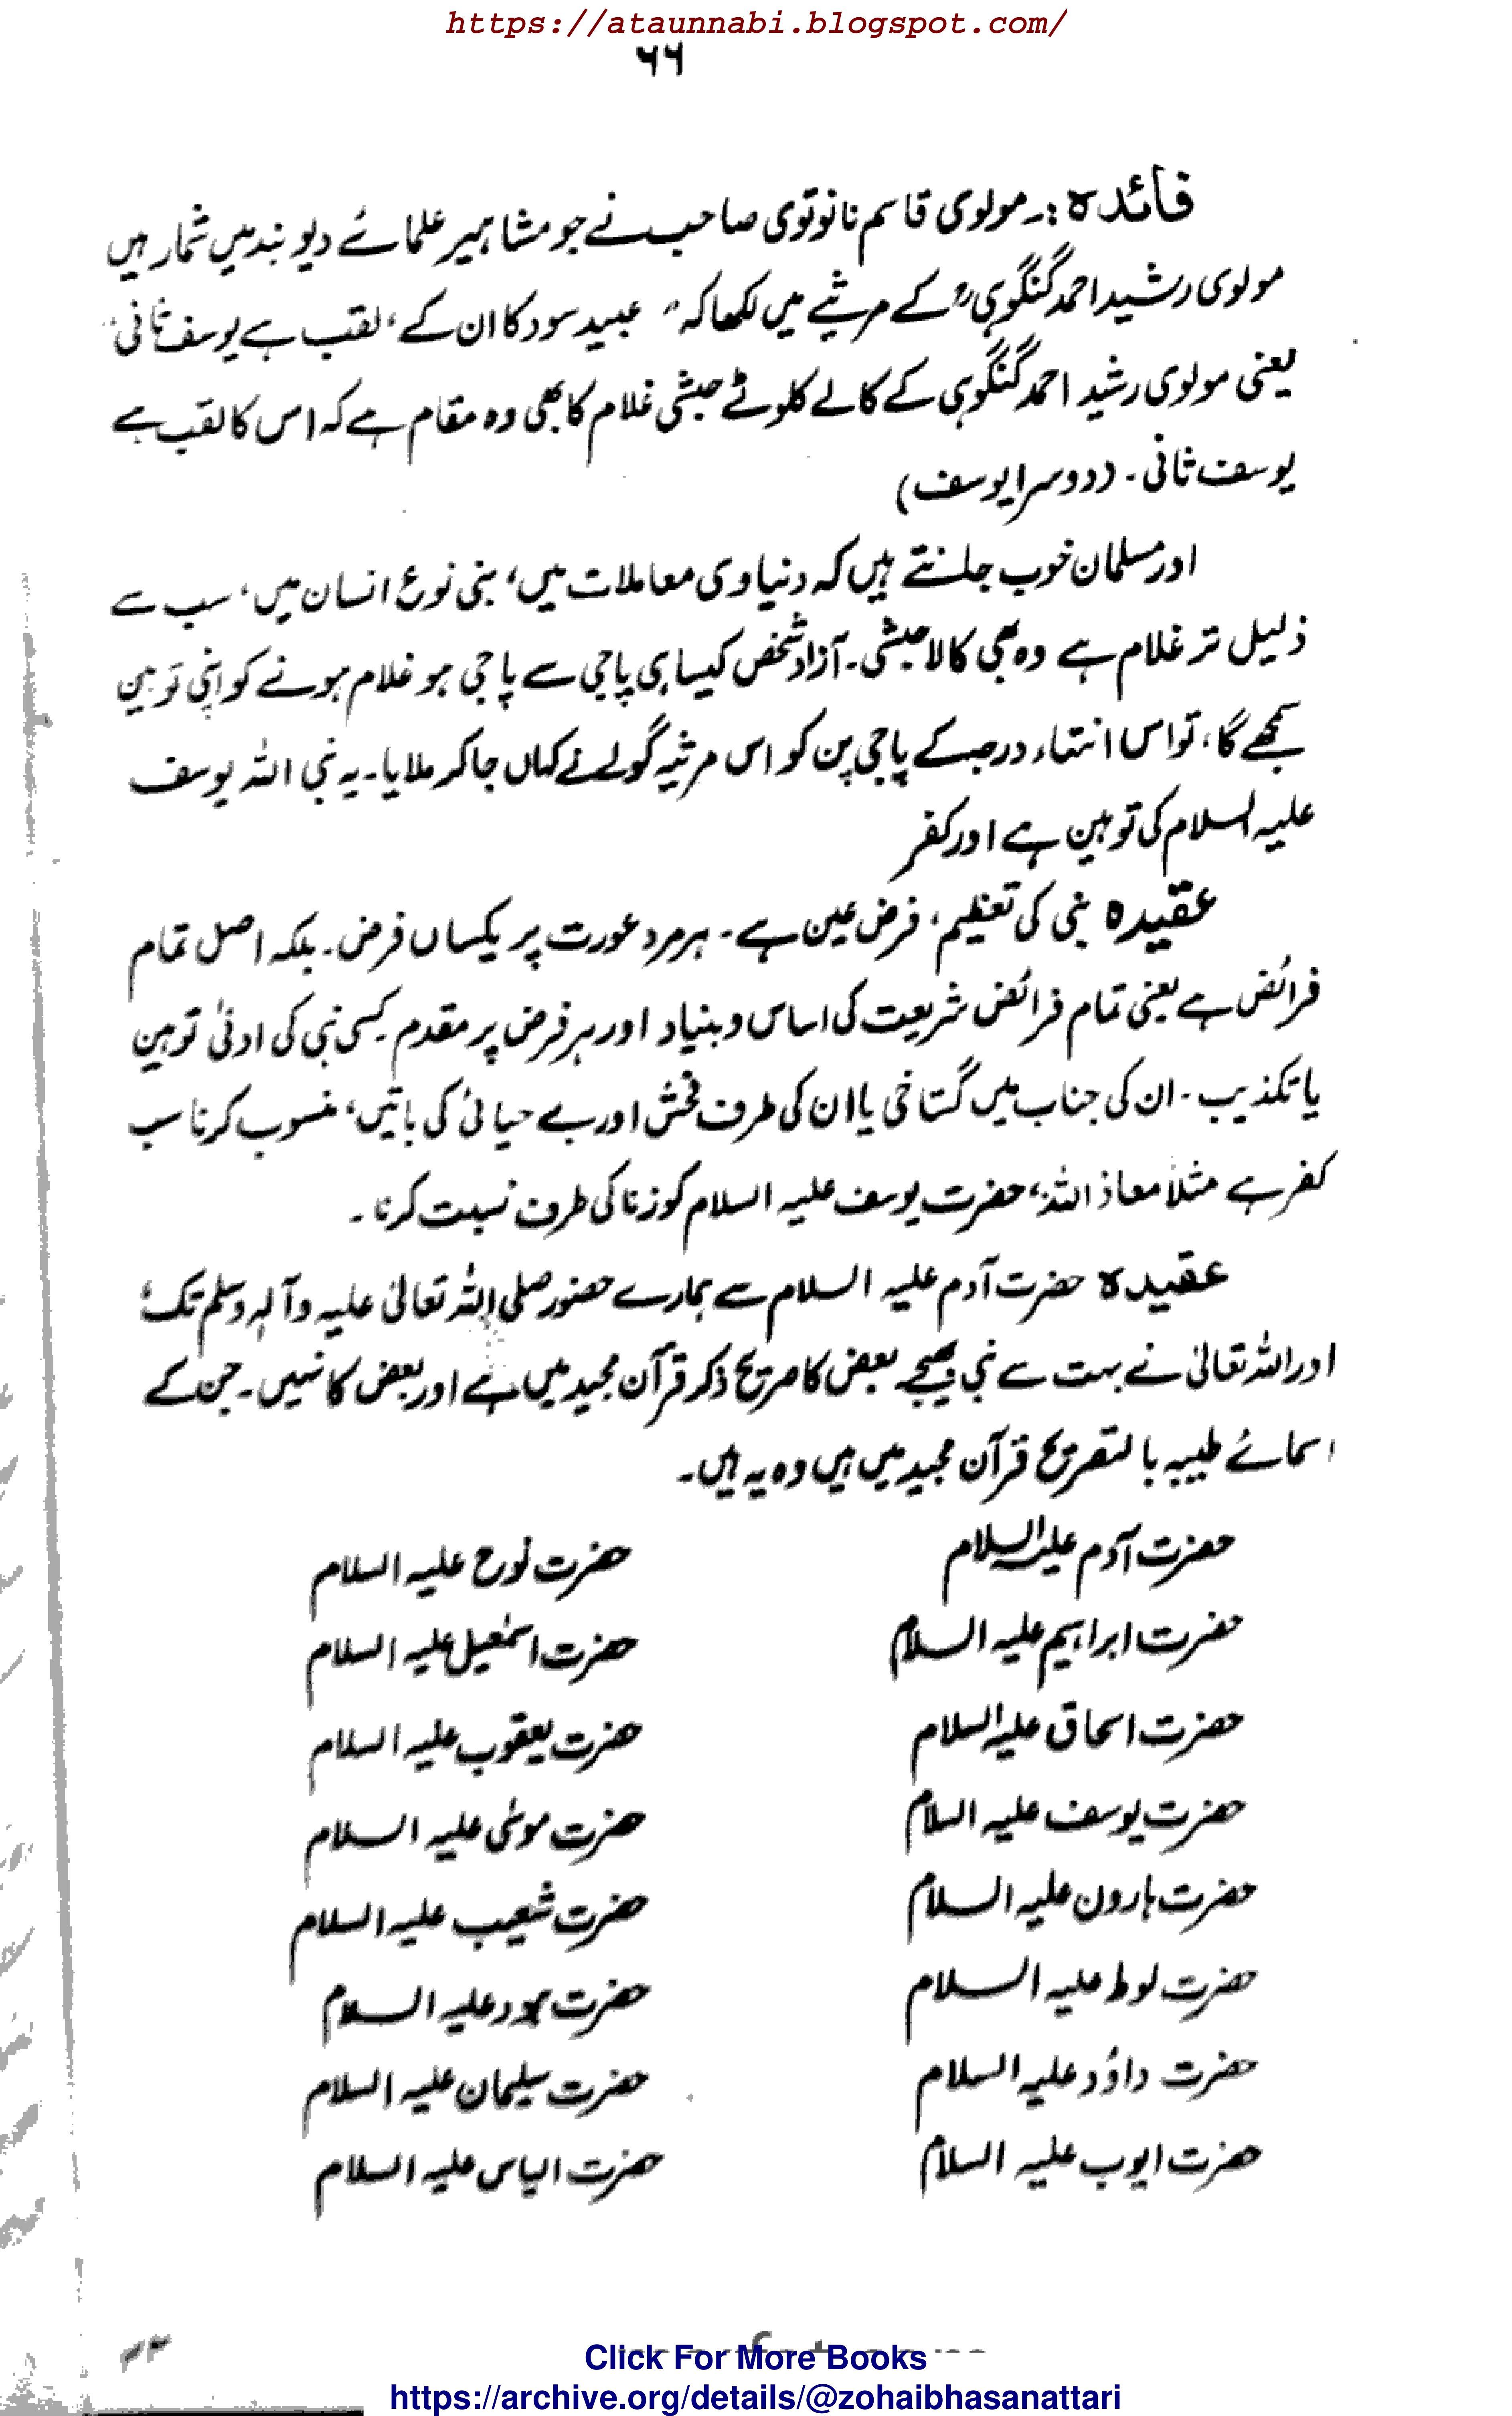 https://ataunnabi.blogspot.com/
۶۶
فائدہ :۔ مولوی قاسم نانوتوی صاحب نے جو مشاہیر علمائے دیوبند میں شمار ہیں
مولوی رشید احمد گنگوہی کے مرثیے میں لکھا کہ ” عبید سود کا ان کے ، لقب ہے یوسف ثانی
یعنی مولوی رشید احمد گنگوہی کے کالے کلوٹے حبشی غلام کا بھی وہ مقام ہے کہ اس کا لقب ہے
یوسف ثانی ۔ (دوسرا یوسف)
اور مسلمان خوب جانتے ہیں کہ دنیاوی معاملات میں، بنی نوع انسان میں، سب سے
ذلیل تر غلام ہے وہ بھی کالا حبشی۔ آزاد شخص کیسا ہی پاجی سے پاجی ہو غلام ہونے کو اپنی توہین
سمجھے گا، تو اس انتہاء درجہ کے پاجی پن کو اس مرثیہ گو نے کہاں جا کر ملایا۔ یہ نبی اللہ یوسف
علیہ السلام کی توہین ہے اور کفر
عقیدہ نبی کی تعظیم، فرض عین ہے۔ ہر مرد عورت پر یکساں فرض۔ بلکہ اصل تمام
فرائض ہے یعنی تمام فرائض شریعت کی اساس و بنیاد اور ہر فرض پر مقدم۔ کسی نبی کی ادنیٰ توہین
یا تکذیب۔ ان کی جناب میں گستاخی یا ان کی طرف فحش اور بے حیائی کی باتیں، منسوب کرنا سب
کفر ہے مثلاً معاذ اللہ، حضرت یوسف علیہ السلام کو زنا کی طرف نسبت کرنا۔
عقیدہ حضرت آدم علیہ السلام سے ہمارے حضور صلی اللہ تعالیٰ علیہ وآلہ وسلم تک
اور اللہ تعالیٰ نے بہت سے نبی بھیجے بعض کا صریح ذکر قرآن مجید میں ہے اور بعض کا نہیں۔ جن کے
اسمائے طیبہ بالتصریح قرآن مجید میں ہیں وہ یہ ہیں۔
حضرت آدم علیہ السلام
حضرت نوح علیہ السلام
حضرت ابراہیم علیہ السلام
حضرت اسمٰعیل علیہ السلام
حضرت اسحاق علیہ السلام
حضرت یعقوب علیہ السلام
حضرت یوسف علیہ السلام
حضرت موسٰی علیہ السلام
حضرت ہارون علیہ السلام
حضرت شعیب علیہ السلام
حضرت لوط علیہ السلام
حضرت ہود علیہ السلام
حضرت داؤد علیہ السلام
حضرت سلیمان علیہ السلام
حضرت ایوب علیہ السلام
حضرت الیاس علیہ السلام
Click For More Books
https://archive.org/details/@zohaibhasanattari